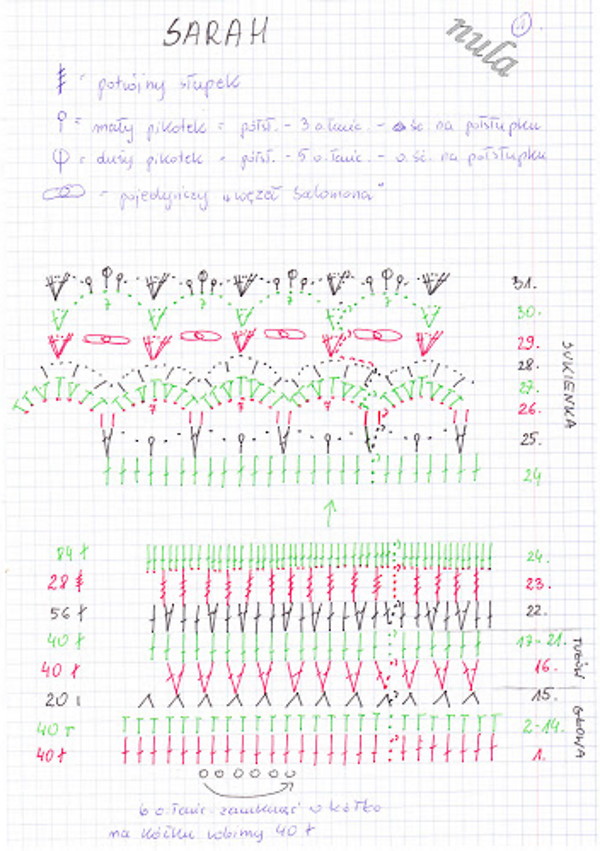 SARAH
nula
1
= potrójny słupek
= mały pikotek = półsł. - 3 o.łańc. - o.śc. na półsłupku
= duży pikotek = półsł. - 5 o.łańc. - o.śc. na półsłupku
= pojedyńczy "węzeł Salomona"
31.
7 7 7 7 30.
29.
28.
27.
7 7 7 26.
25.
24
SUKIENKA
84 24.
28 23.
56 22.
40 17-21.
40 16.
TUŁÓW
20 15.
40 2-14.
40 1.
GŁOWA
6 o.łańc. zamknąć w kółko
na kółku robimy 40